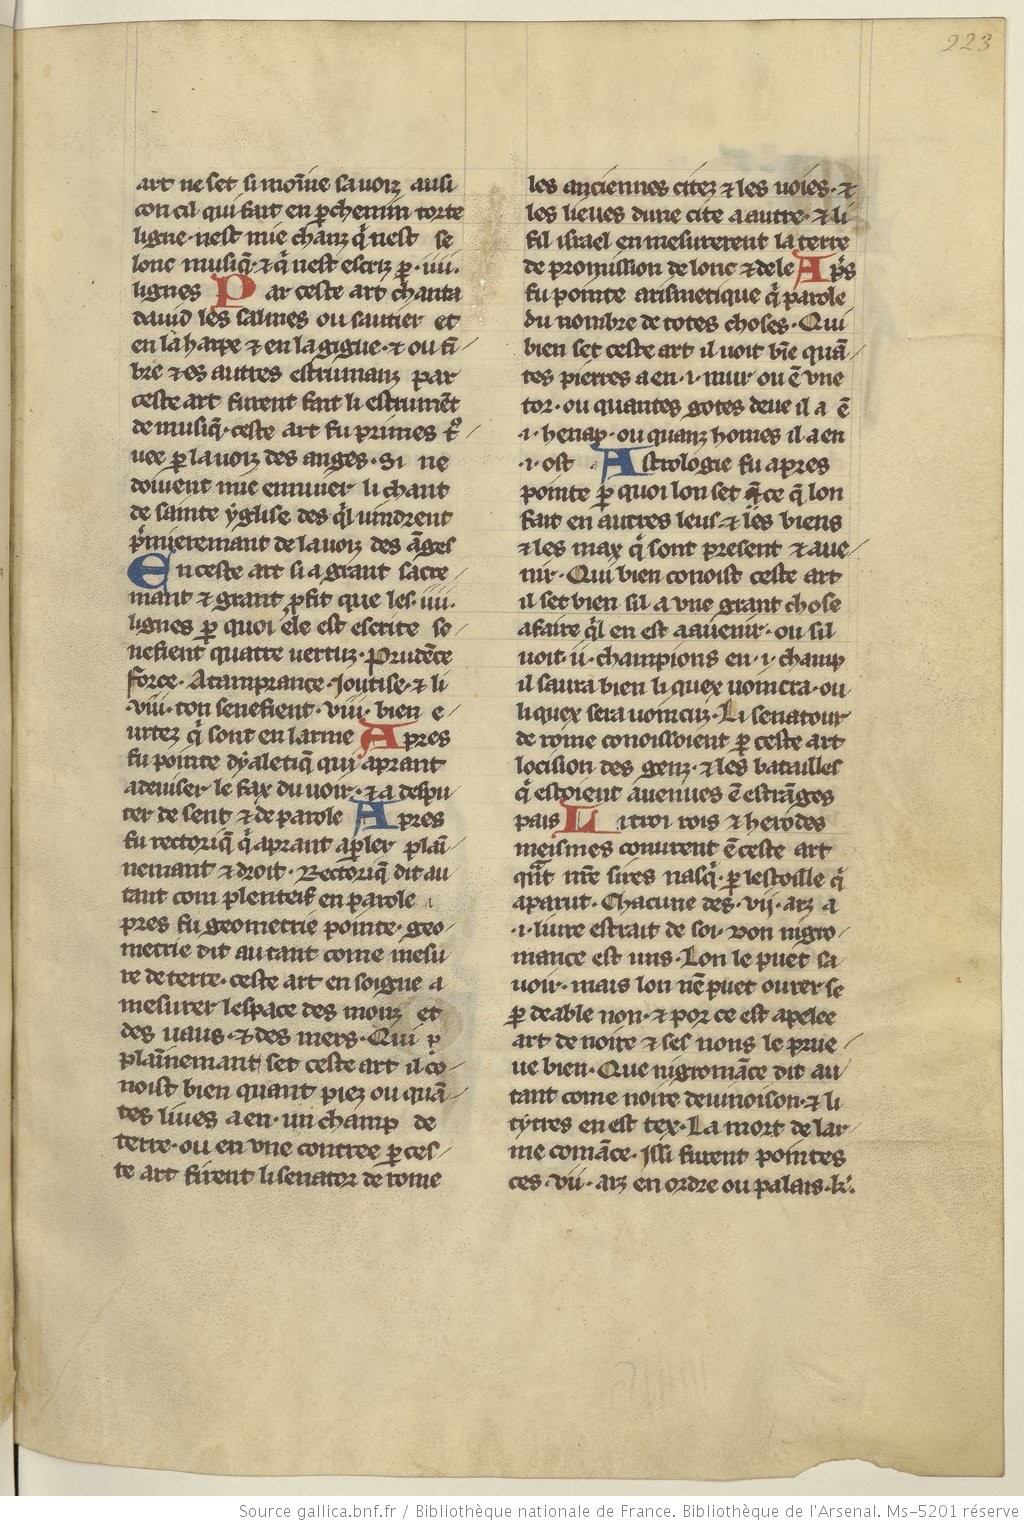 223
art ne set si moin̄e savoir ausi
con cil qui fait en p̱chemin torte
ligne · nest mie chanz q̄ nest se
lonc musiq̄ · ⁊ q̄ nest escriz p̱ · iiii ·
lignes Par ceste art chanta
david les salmes ou sautier et
en la harpe ⁊ en la gigue · ⁊ ou ti͂
bre ⁊ es autres estrumanz par
ceste art furent fait li estrumēt
de musiq̄ · ceste art fu primes t᷑
vee p̱ la voiz des anges · Si ne
doivent mie ennuier li chant
de sainte yglise des q̄l vindrent
p̄mierement de la voiz des āges
En ceste art si a grant sacre
mant ⁊ grant ꝓfit que les · iiii ·
lignes p̱ quoi ele est escrite se
nefient quatre vertuz · Prudēce
force · Atamprance · Joutise · ⁊ li
· viii · ton senefient · viii · bien e
urtez q̄ sont en larme Apres
fu pointe dyaletiq̄ qui aprant
a deviser le fax du voir · ⁊ a despu
ter de sent ⁊ de parole Apres
fu rectoriq̄ q̄ aprant a p̱ler plai͂
nemant ⁊ droit · Rectoriq̄ dit au
tant com plenteif en parole
pres fu geometrie pointe · geo
metrie dit autant come mesu
re de terre · ceste art en soigne a
mesurer lespace des monz et
des vaus · ⁊ des mers · Qui p̱
plai͂nemant set ceste art il co͂
noist bien quant piez ou quā
tes liues a en · un champ de
terre · ou en vne contree p̱ ces
te art firent li senator de rome
les anciennes citez ⁊ les voies · ⁊
les lieues dune cite a autre · ⁊ li
fil israel en mesurerent la terre
de promission de lonc ⁊ de le Ap̄s
fu pointe arismetique q̄ parole
du nombre de totes choses · Qui
bien set ceste art il voit bn̄e quā
tes pierres a en · i · mur ou ē vne
tor · ou quantes gotes deue il a ē
· i · henap · ou quanz homes il a en
· i · ost · Astrologie fu apres
pointe p̱ quoi lon set q̄nce q̄ lon
fait en autres leus ⁊ les biens
⁊ les max q̄ sont present ⁊ a ave
nir · Qui bien conoist ceste art
il set bien sil a vne grant chose
a faire q̄l en est a avenir · ou sil
voit · ii · champions en · i · champ
il saura bien li quex vointra · ou
li quex sera voincuz · Li senatour
de rome conoissoient p̱ ceste art
locision des genz · ⁊ les batailles
q̄ estoient avenues ē estrāges
pais Li troi rois ⁊ herodes
meismes conurent ē ceste art
qn̄t nr̄e sires nasq̄ · p̱ lestoille q̄
aparut · Chacune des · vii · arz a
· i · livre estrait de soi · don nigro
mance est uns · Lon le puet sa
voir · mais lon nē puet ovrer se
p̱ deable non · ⁊ por ce est apelee
art de noire ⁊ ses nons le prue
ve bien · Que nigromāce dit au
tant come noire devinoison · ⁊ li
tytres en est tex · La mort de lar
me comāce · Issi furent pointes
ces · vii · arz en ordre ou palais · k᷑.
Source gallica.bnf.fr / Bibliothèque nationale de France. Bibliothèque de l'Arsenal. Ms-5201 réserve